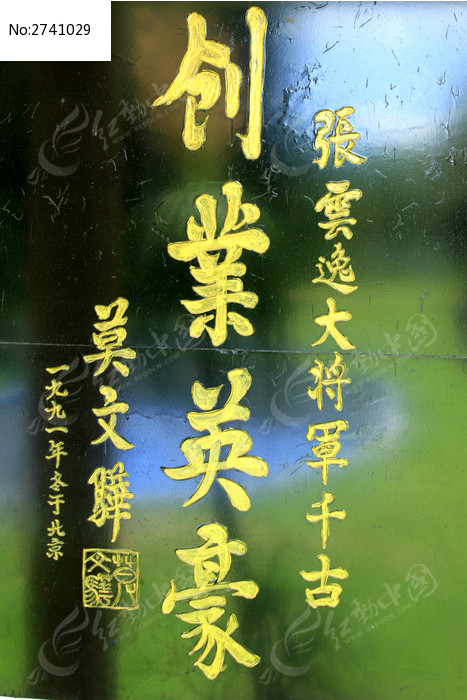 No:2741029
張雲逸大将軍千古
创業英豪
莫文驊
一九九一年冬于北京
莫文驊
红动中国